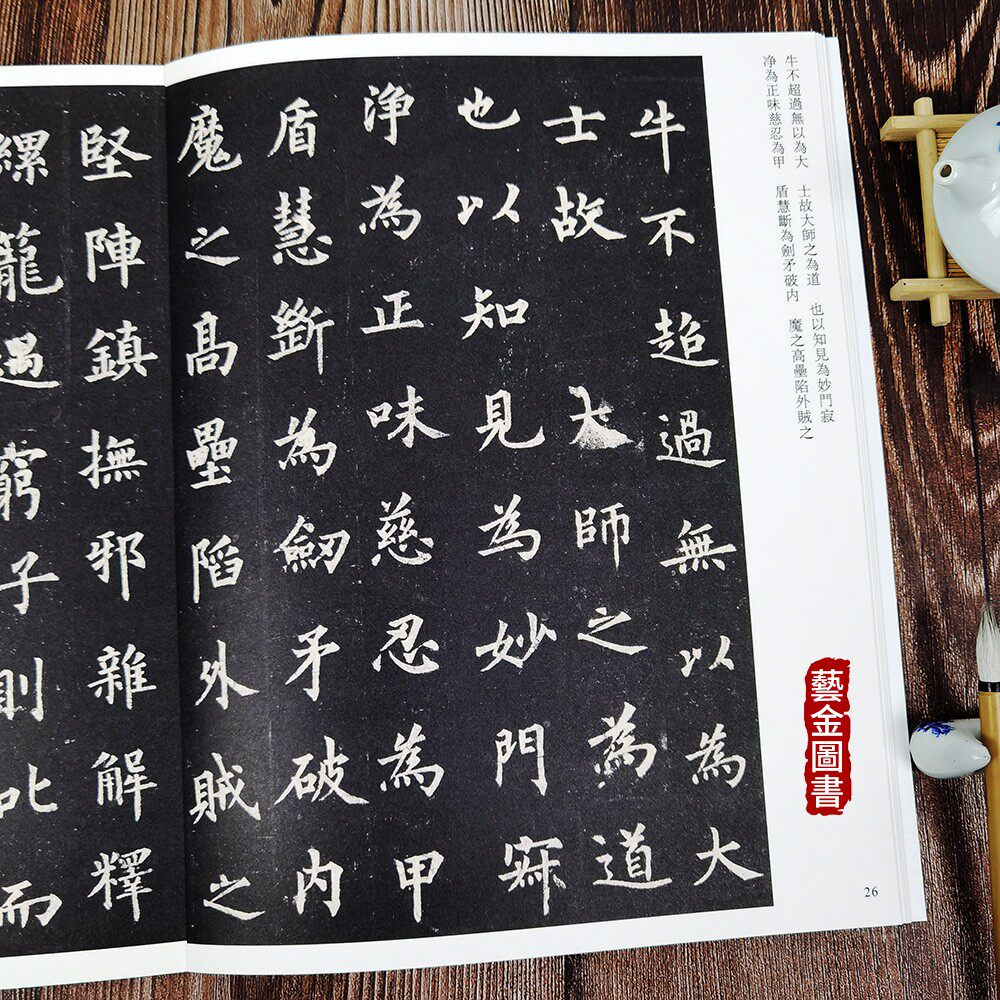 牛不超過無以為大　士故大師之為道　也以知見為妙門寂
净為正味慈忍為甲　盾慧斷為劍矛破内　魔之高壘陷外賊之
牛不超過無以為大
士故大師之為道
也以知見為妙門寂
淨為正味慈忍為甲
盾慧斷為劒矛破内
魔之高壘陷外賊之
堅陣鎮撫邪雜解釋
縲籠遇窮子則叱而
藝金圖書
26